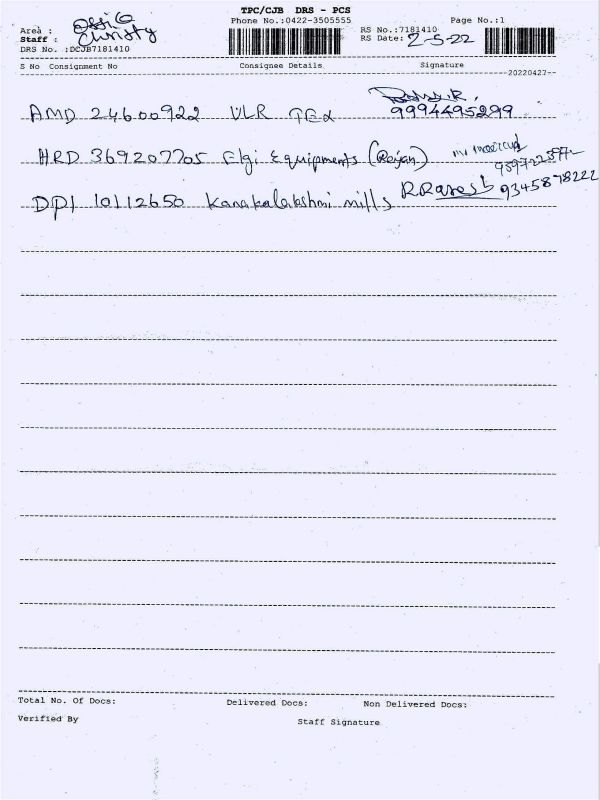 TPC/CJB DRS - PCS
Phone No.:0422-3505555 Page No.:1
Area : Office
Staff : Christy
DRS No. :DCJB7181410
RS No.:7181410
RS Date: 2-5-22
S No Consignment No Consignee Details Signature
20220427
AMD 246.00922 VLR TEX 9994495299
HRD 369207705 Elgi Equipments (Rajan)
DPI 10112650 Kanakalakshmi mills 9345878222
Total No. Of Docs: Delivered Docs: Non Delivered Docs:
Verified By Staff Signature